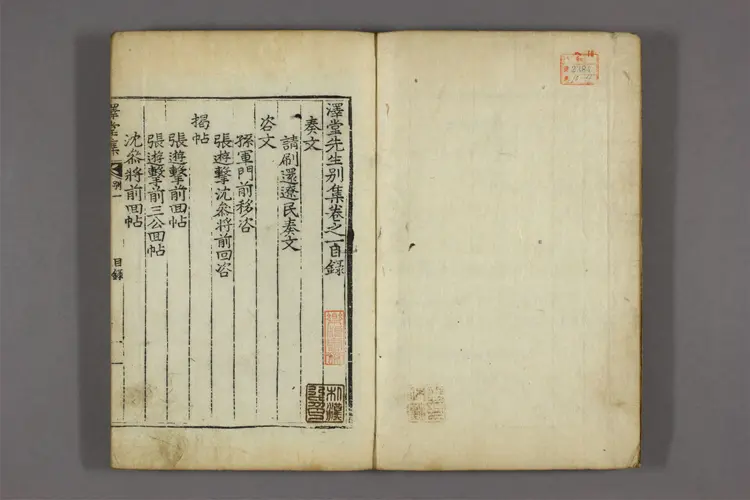 澤堂先生別集卷之一目錄
奏文
請刷還遼民奏文
咨文
孫軍門前移咨
張遊擊沈叅將前回咨
揭帖
張遊擊前回帖
張遊擊前三公回帖
沈叅將前回帖
澤堂集
別一
目錄
一